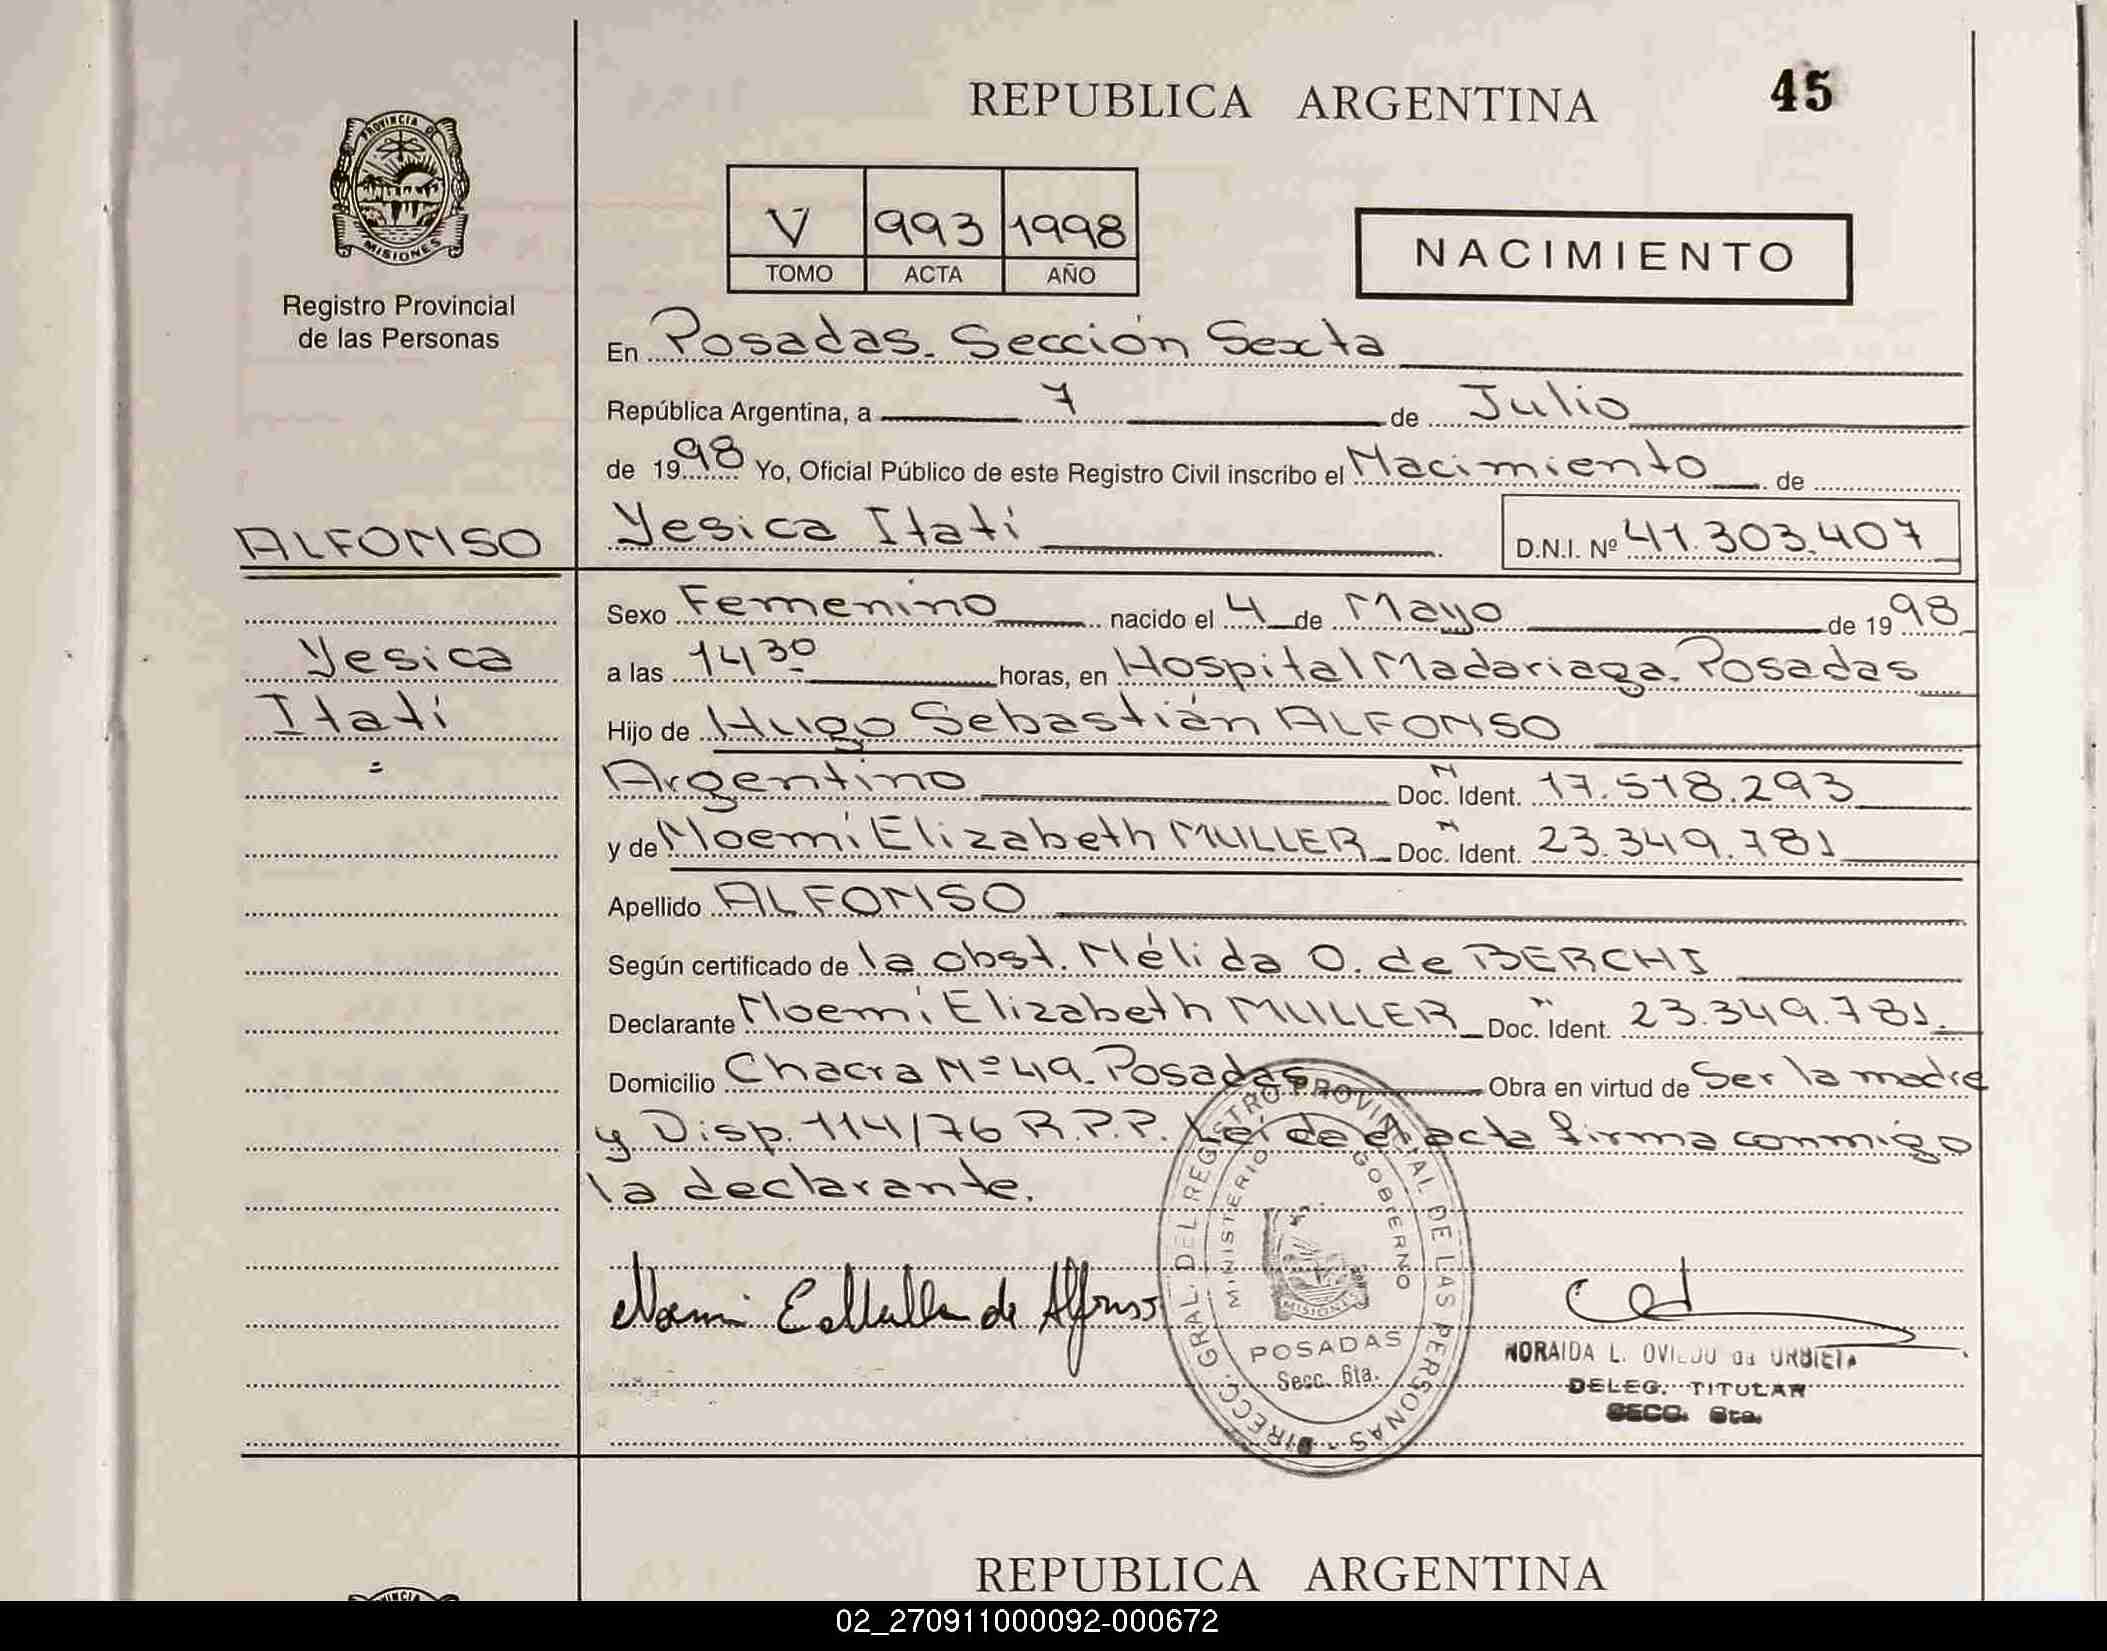 REPUBLICA ARGENTINA
45
PROVINCIA DE
MISIONES
Registro Provincial
de las Personas
V 993 1998
TOMO ACTA AÑO
NACIMIENTO
En Posadas. Sección Sexta
República Argentina, a 7 de Julio
de 1998 Yo, Oficial Público de este Registro Civil inscribo el Nacimiento de
ALFONSO
Yesica Itatí
D.N.I. Nº 41.303.407
Sexo Femenino nacido el 4 de Mayo de 1998
Yesica
a las 14 30 horas, en Hospital Madariaga. Posadas
Itatí
Hijo de Hugo Sebastián ALFONSO
Argentino Doc. N Ident. 17.518.293
y de Noemí Elizabeth MULLER Doc. N Ident. 23.349.781
Apellido ALFONSO
Según certificado de la obst. Nélida O. de BERCHI
Declarante Noemí Elizabeth MULLER Doc. N Ident. 23.349.781.
Domicilio Chacra Nº 49. Posadas Obra en virtud de Ser la madre
y Disp. 114/76 R.P.P. Leída el acta firma conmigo
la declarante.
Noemi E. Muller de Alfonso
DIRECC. GRAL. DEL REGISTRO PROVINCIAL DE LAS PERSONAS -
MINISTERIO GOBIERNO
MISIONES
POSADAS
Secc. 6ta.
NORAIDA L. OVIEDO de URBIETA
DELEG. TITULAR
SECC. 6ta.
REPUBLICA ARGENTINA
02_270911000092-000672